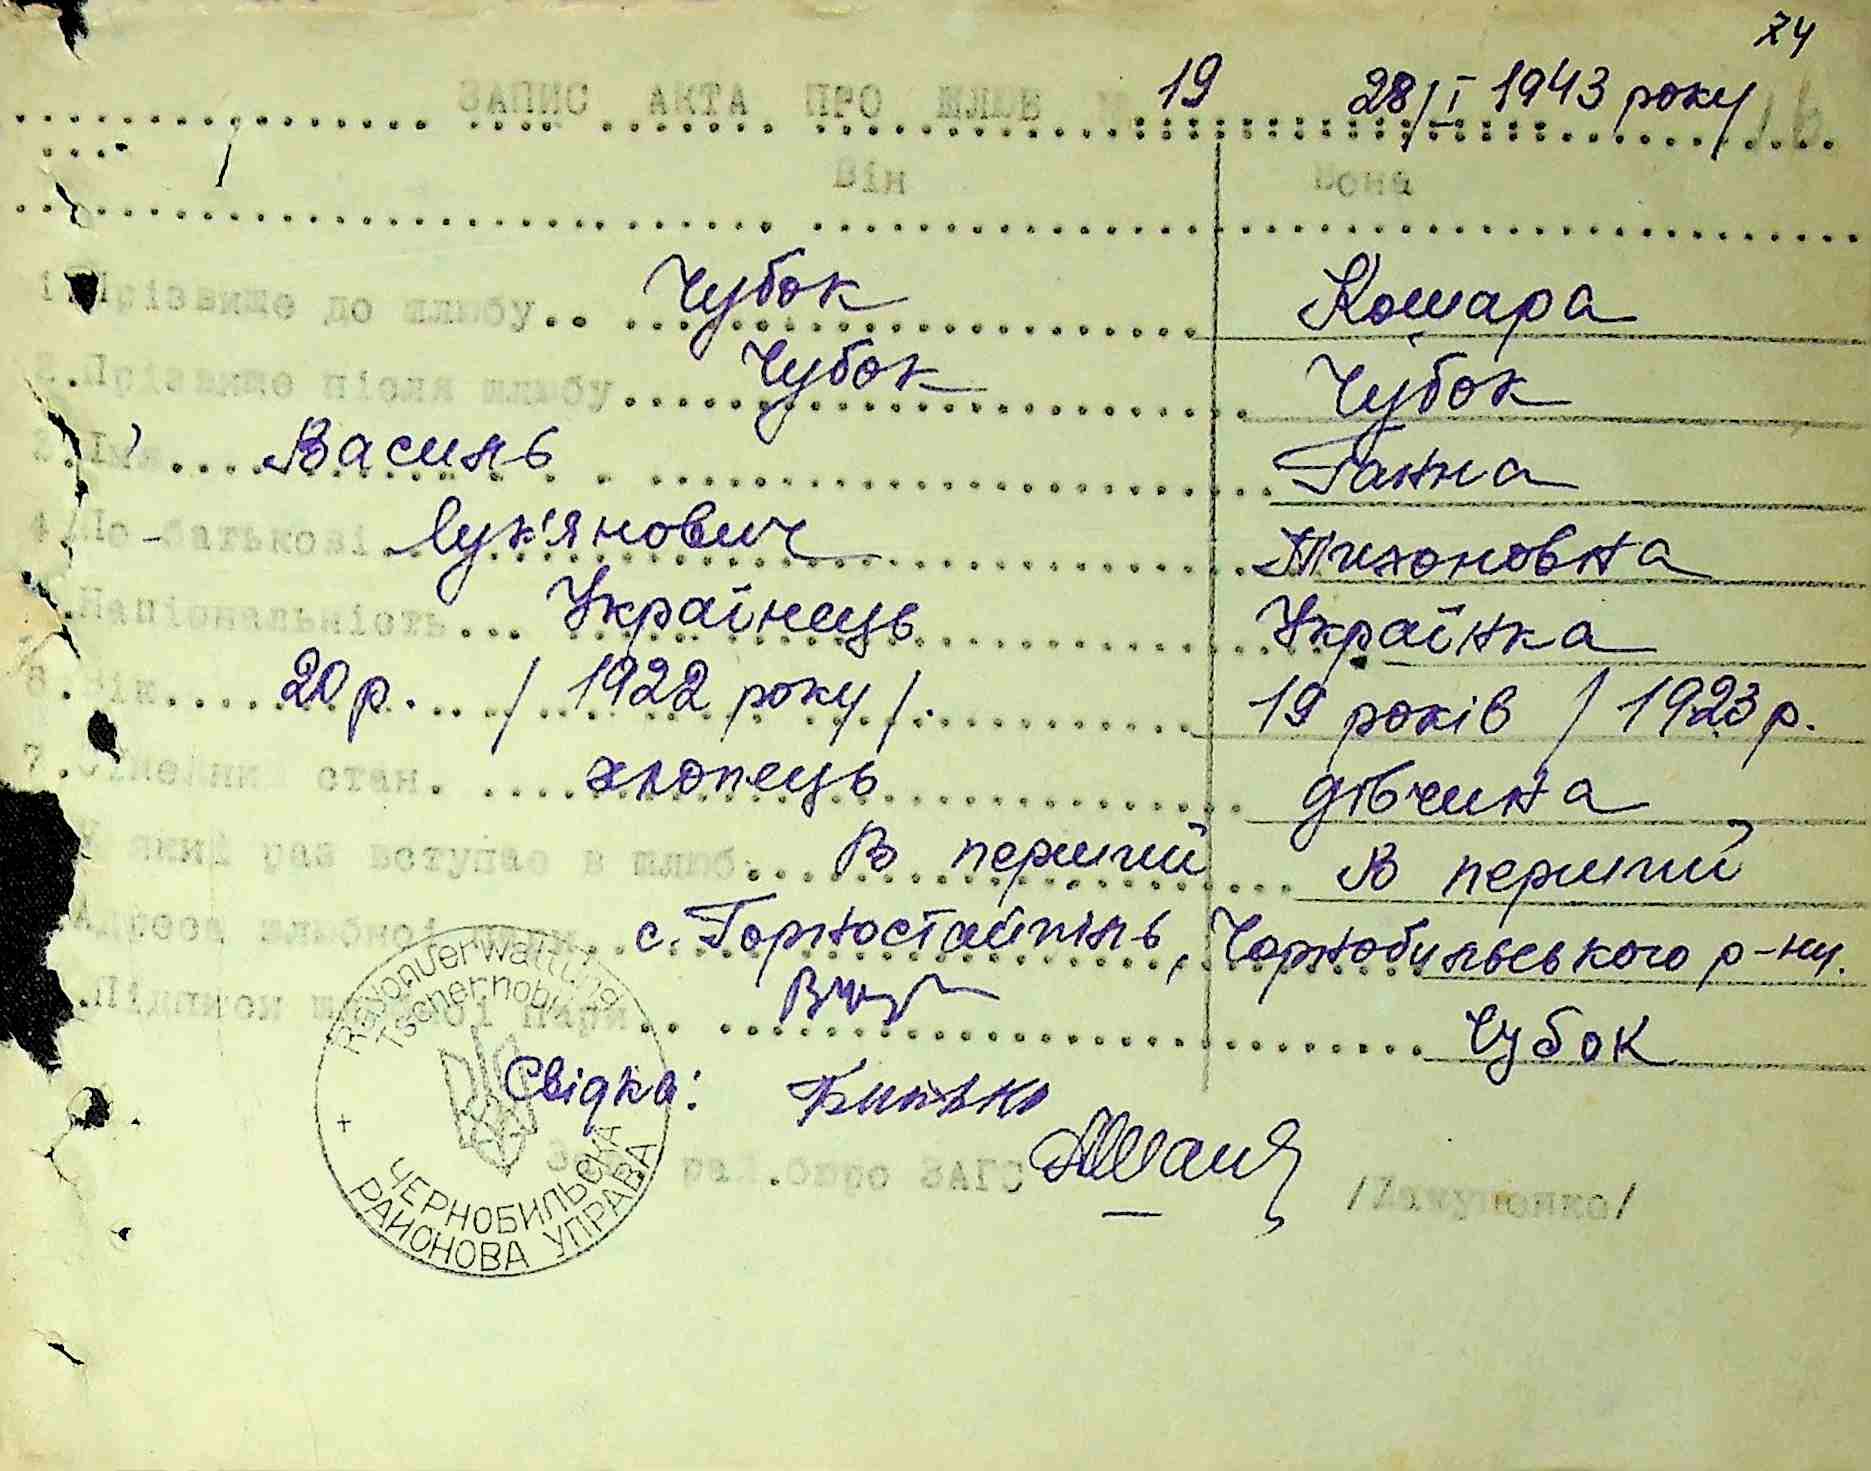 74
ЗАПИС АКТА ПРО ШЛЮБ № 19 28/I 1943 року
Він Вона
1. Прізвище до шлюбу.. Чубок Кошара
2. Прізвище після шлюбу Чубок Чубок
3. Ім'я Василь Ганна
4. По-батькові Лук'янович Тихоновна
5. Національність Українець Українка
6. Вік 20 р. / 1922 року /. 19 років / 1923 р.
7. Сімейний стан. хлопець дівчина
У який раз вступає в шлюб В перший В перший
Адреса шлюбної пари с. Горностайпіль, Чорнобильського р-ну.
Підписи шлюбної пари Чубок
Свідки:
Зав. рай.бюро ЗАГС
Rayonverwaltung
Tschernobyl
ЧЕРНОБИЛЬСКА
РАЙОНОВА УПРАВА